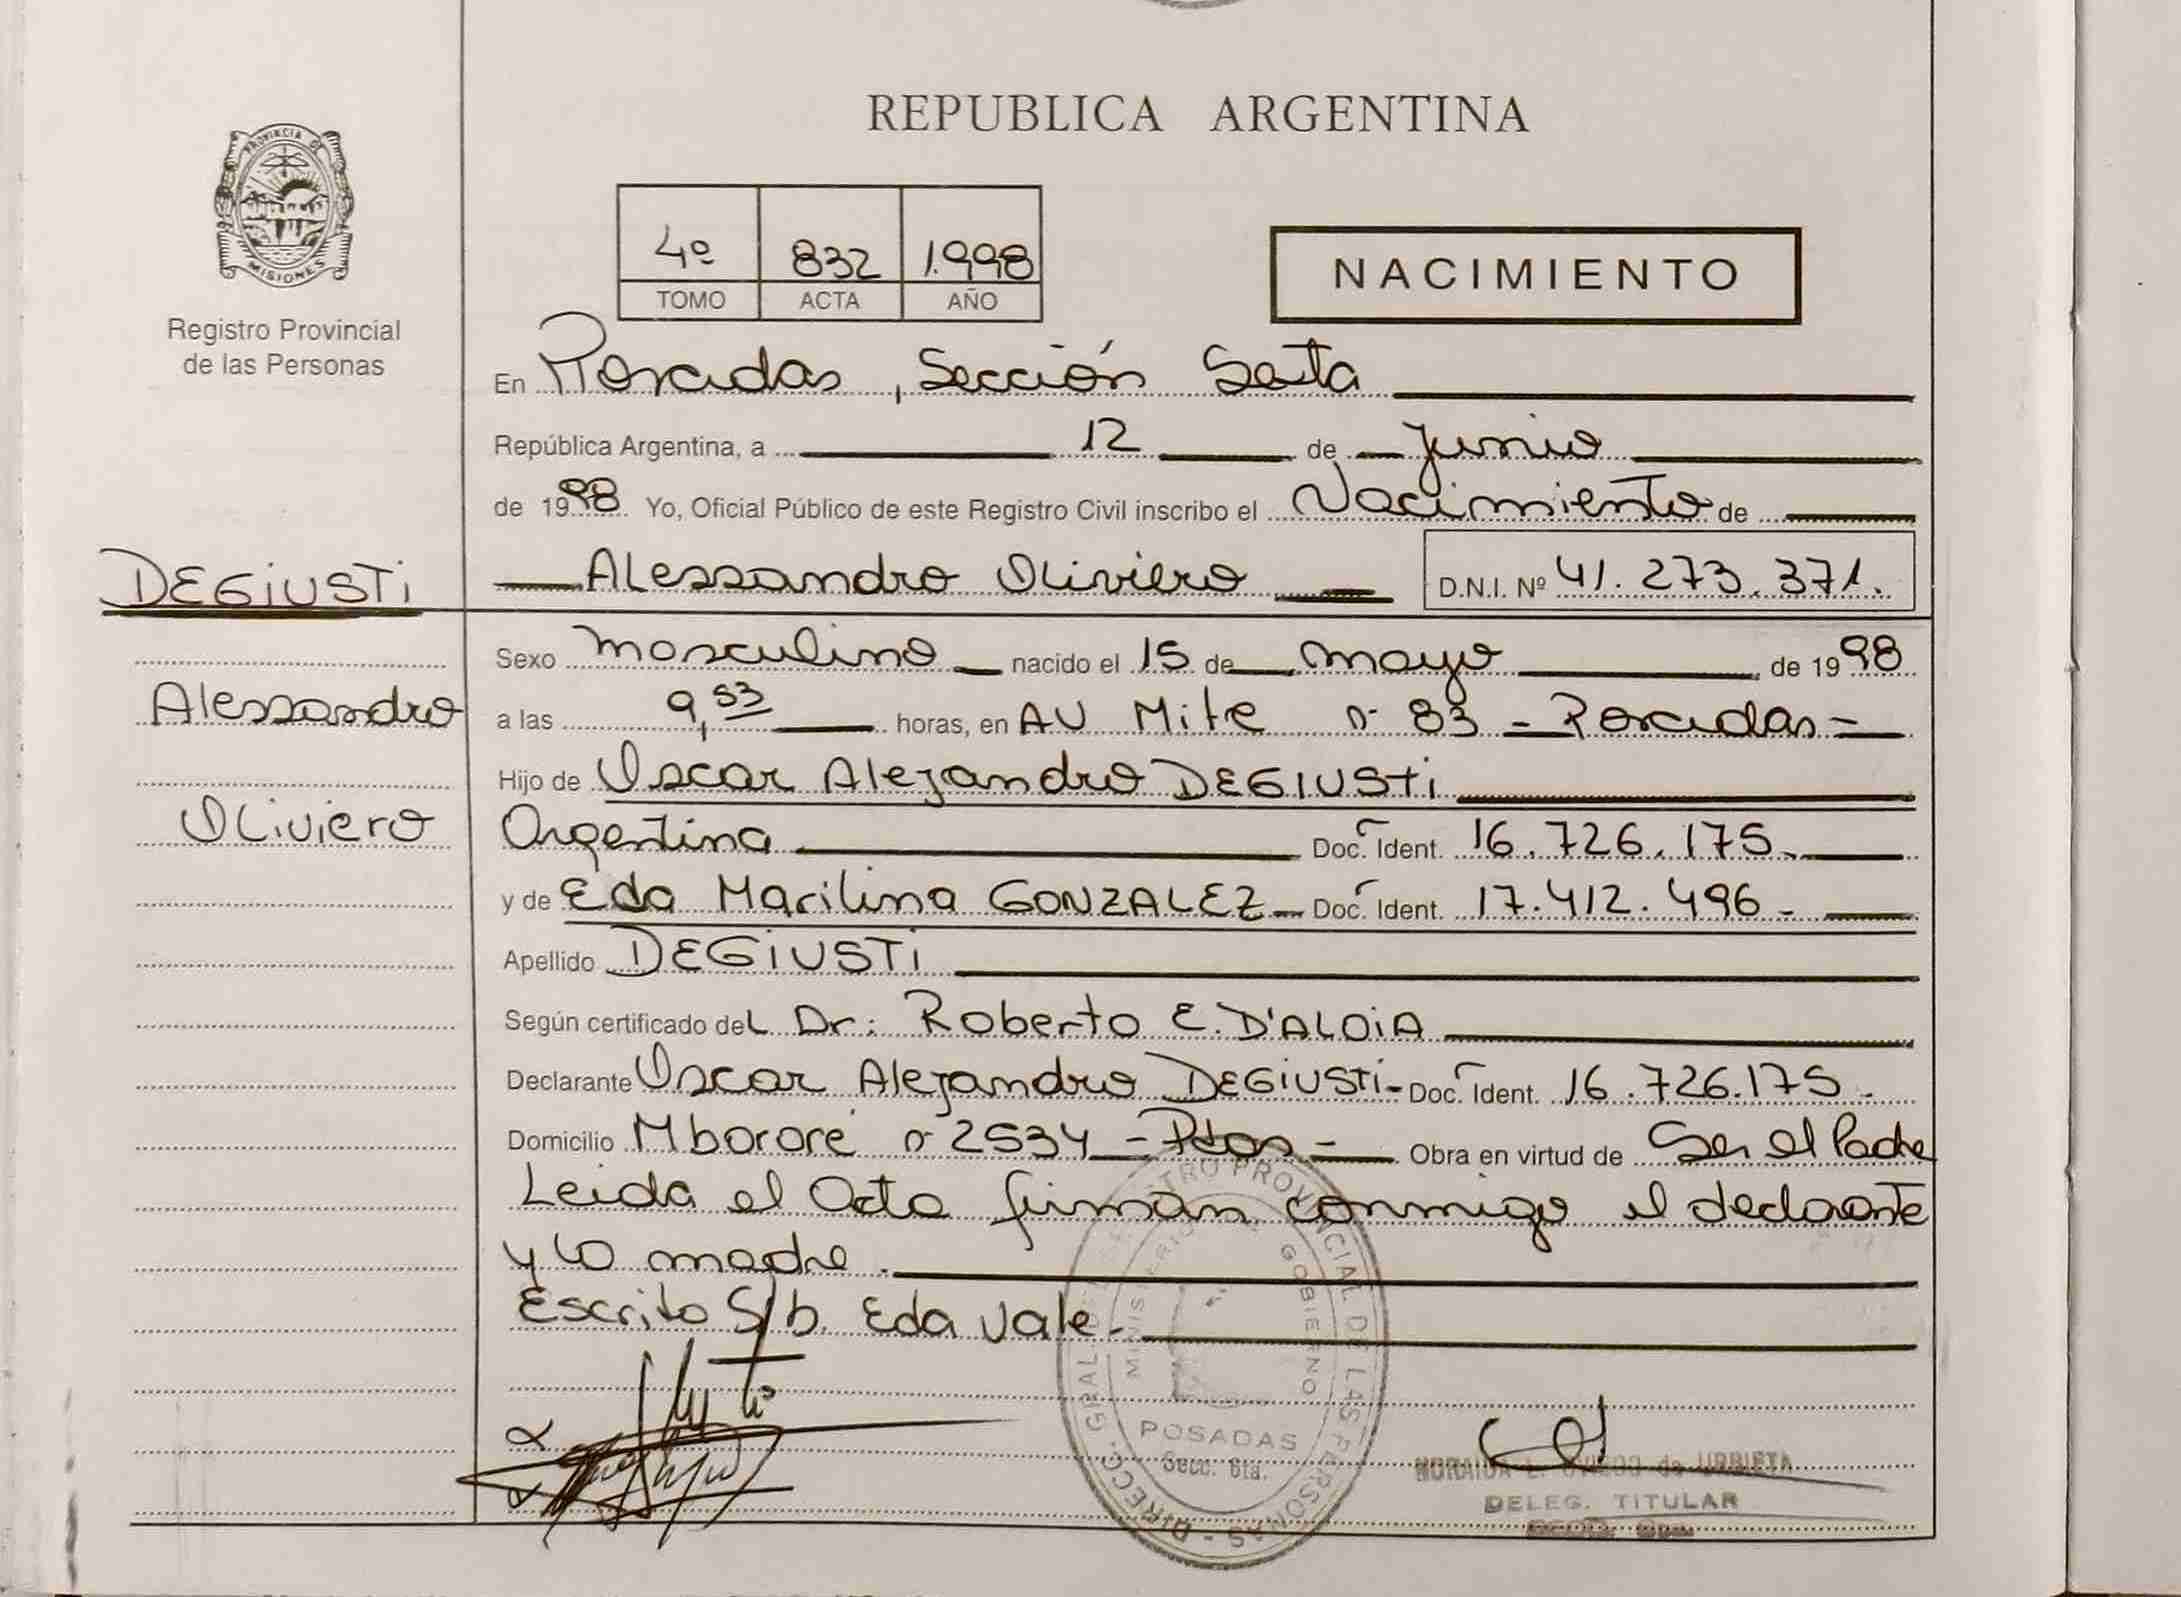 REPUBLICA ARGENTINA
PROVINCIA DE
MISIONES
Registro Provincial
de las Personas
4º 832 1.998
TOMO ACTA AÑO
NACIMIENTO
En Posadas, Sección Sexta
República Argentina, a 12 de Junio
de 1998 Yo, Oficial Público de este Registro Civil inscribo el Nacimiento de
DEGIUSTI
Alessandro Oliviero D.N.I. Nº 41.273.371.
Sexo masculino nacido el 15 de mayo de 1998
Alessandro
a las 9,53 horas, en AV Mitre nº 83 - Posadas -
Hijo de Oscar Alejandro DEGIUSTI
Oliviero
Argentina Doc. Ident. 16.726.175.
y de Eda Marilina GONZALEZ - Doc. Ident. 17.412.496 -
Apellido DEGIUSTI
Según certificado del Dr: Roberto E. D'ALOIA
Declarante Oscar Alejandro DEGIUSTI - Doc. Ident. 16.726.175.
Domicilio Mbororé nº 2534 - Pdas - Obra en virtud de Ser el Padre
Leida el Acta firman conmigo el declarante
y la madre.
Escrito S/b. Eda Vale -
DIRECC. GRAL. REGISTRO PROVINCIAL DE LAS PERSONAS
MINISTERIO GOBIERNO
POSADAS
Secc. 6ta.
de URBIETA
DELEG. TITULAR